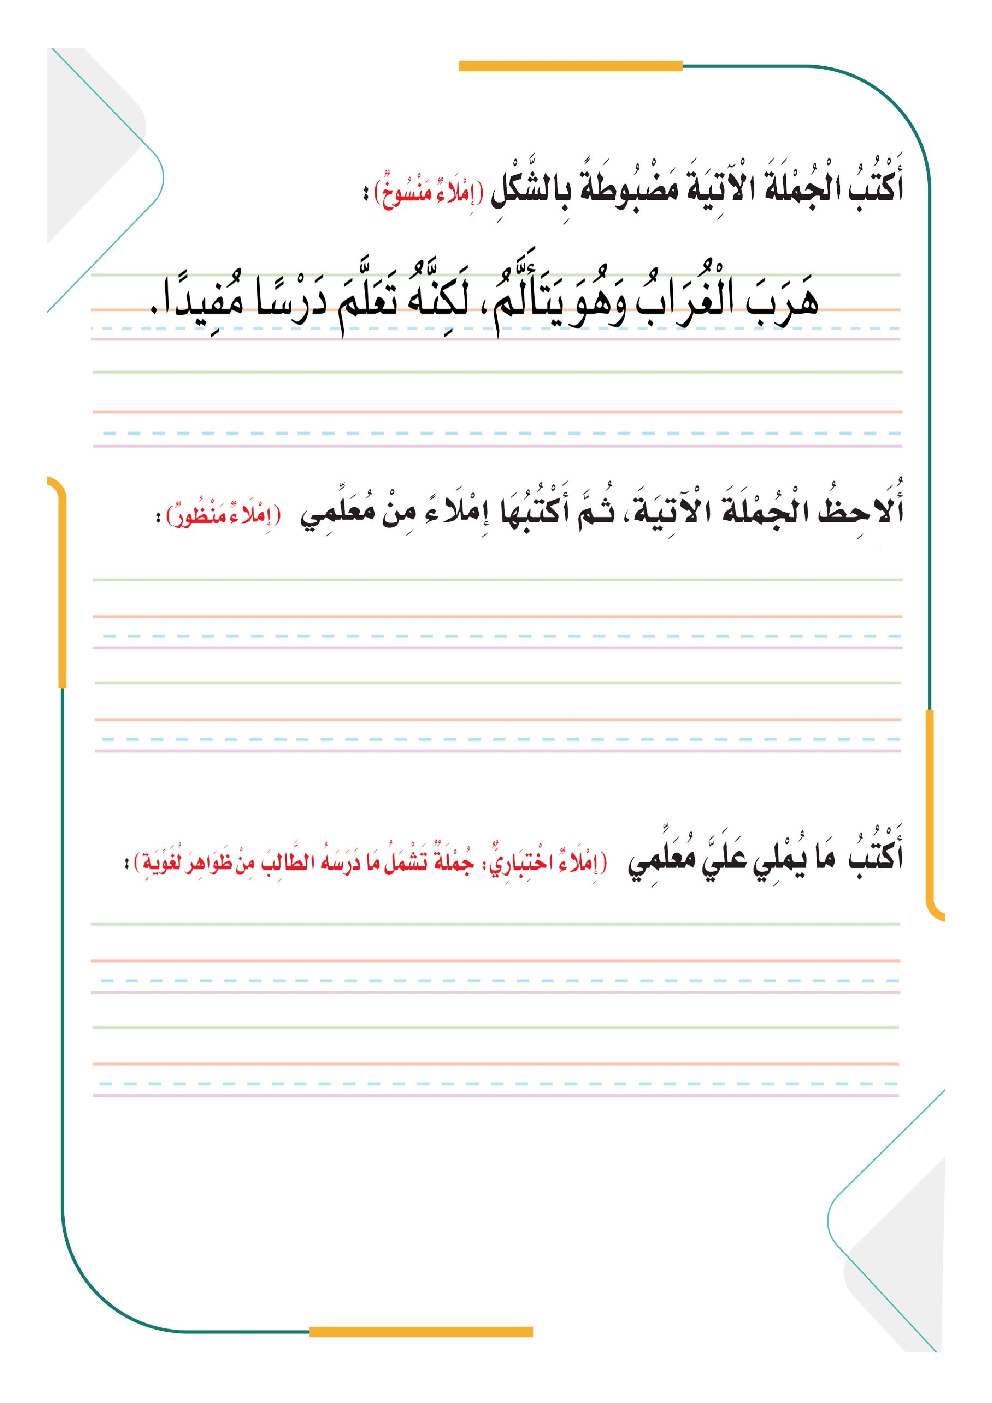 أَكْتُبُ الْجُمْلَةَ الْآتِيَةَ مَضْبُوطَةً بِالشَّكْلِ (إِمْلَاءٌ مَنْسُوخٌ) :
هَرَبَ الْغُرَابُ وَهُوَ يَتَأَلَّمُ، لَكِنَّهُ تَعَلَّمَ دَرْسًا مُفِيدًا.
أُلَاحِظُ الْجُمْلَةَ الْآتِيَةَ، ثُمَّ أَكْتُبُهَا إِمْلَاءً مِنْ مُعَلِّمِي (إِمْلَاءٌ مَنْظُورٌ) :
أَكْتُبُ مَا يُمْلِي عَلَيَّ مُعَلِّمِي (إِمْلَاءٌ اخْتِبَارِيٌّ: جُمْلَةٌ تَشْمَلُ مَا دَرَسَهُ الطَّالِبَ مِنْ ظَوَاهِرَ لُغَوْيَةٍ) :